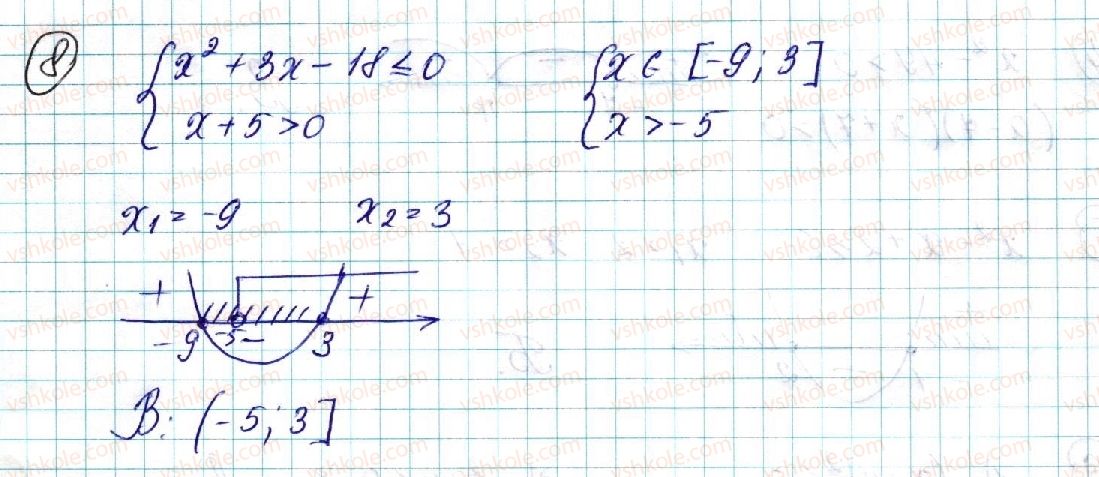 8
{ x² + 3x - 18 ≤ 0
{ x + 5 > 0
{ x ∈ [-9; 3]
{ x > -5
x₁ = -9 x₂ = 3
+ +
-9 -5 - 3
В: (-5; 3]
vshkole.com